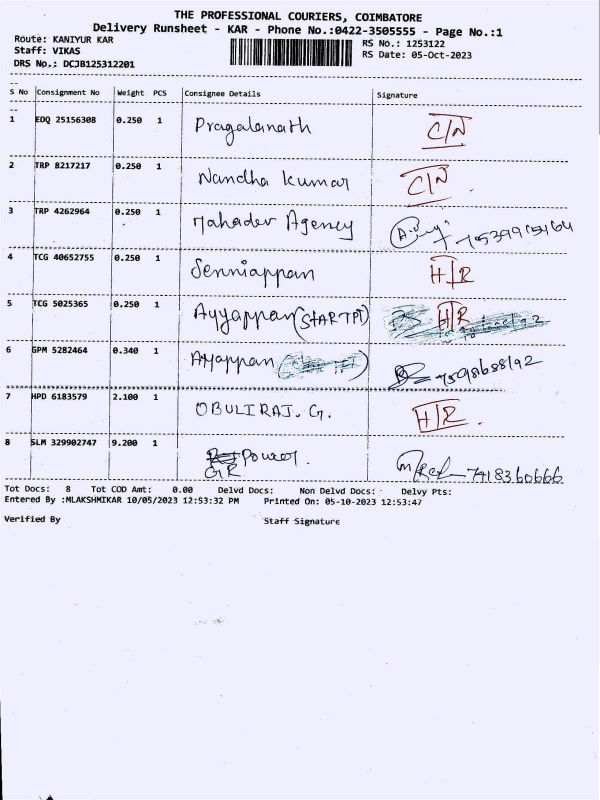 THE PROFESSIONAL COURIERS, COIMBATORE
Delivery Runsheet - KAR - Phone No.:0422-3505555 - Page No.:1
Route: KANIYUR KAR RS No.: 1253122
Staff: VIKAS RS Date: 05-Oct-2023
DRS No.: DCJB125312201
S No Consignment No Weight PCS Consignee Details Signature
1 EDQ 25156308 0.250 1 C/N
2 TRP 8217217 0.250 1 Nandha Kumar C/N
3 TRP 4262964 0.250 1 Mahadev Agency
4 TCG 40652755 0.250 1 Senniappan H/R
5 TCG 5025365 0.250 1 Ayyappan (STAR TPT) H/R
6 GPM 5282464 0.340 1 Ayappan
7 HPD 6183579 2.100 1 OBULIRAJ. G. H/R.
8 SLM 329902747 9.200 1 Power. 7418360666
GR
Tot Docs: 8 Tot COD Amt: 0.00 Delvd Docs: Non Delvd Docs: Delvy Pts:
Entered By :MLAKSHMIKAR 10/05/2023 12:53:32 PM Printed On: 05-10-2023 12:53:47
Verified By Staff Signature